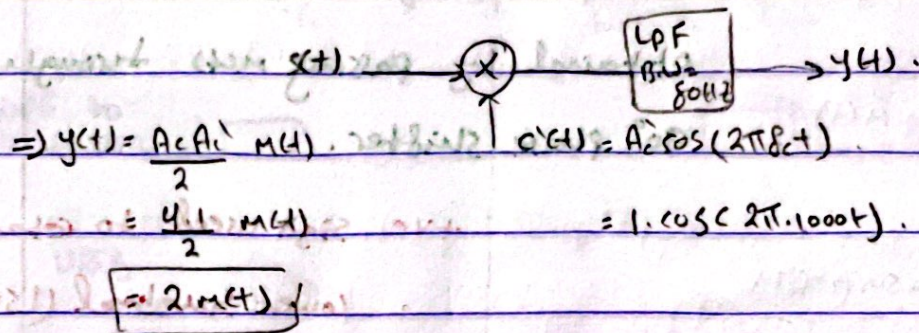 s(t) → X → LPF B.W= 80Hz → y(t).
⇒ y(t) = AcAc`/2 m(t). c`(t) = Ac` cos(2πfct).
= 4.1/2 m(t) = 1.cos( 2π.1000t).
= 2 m(t)